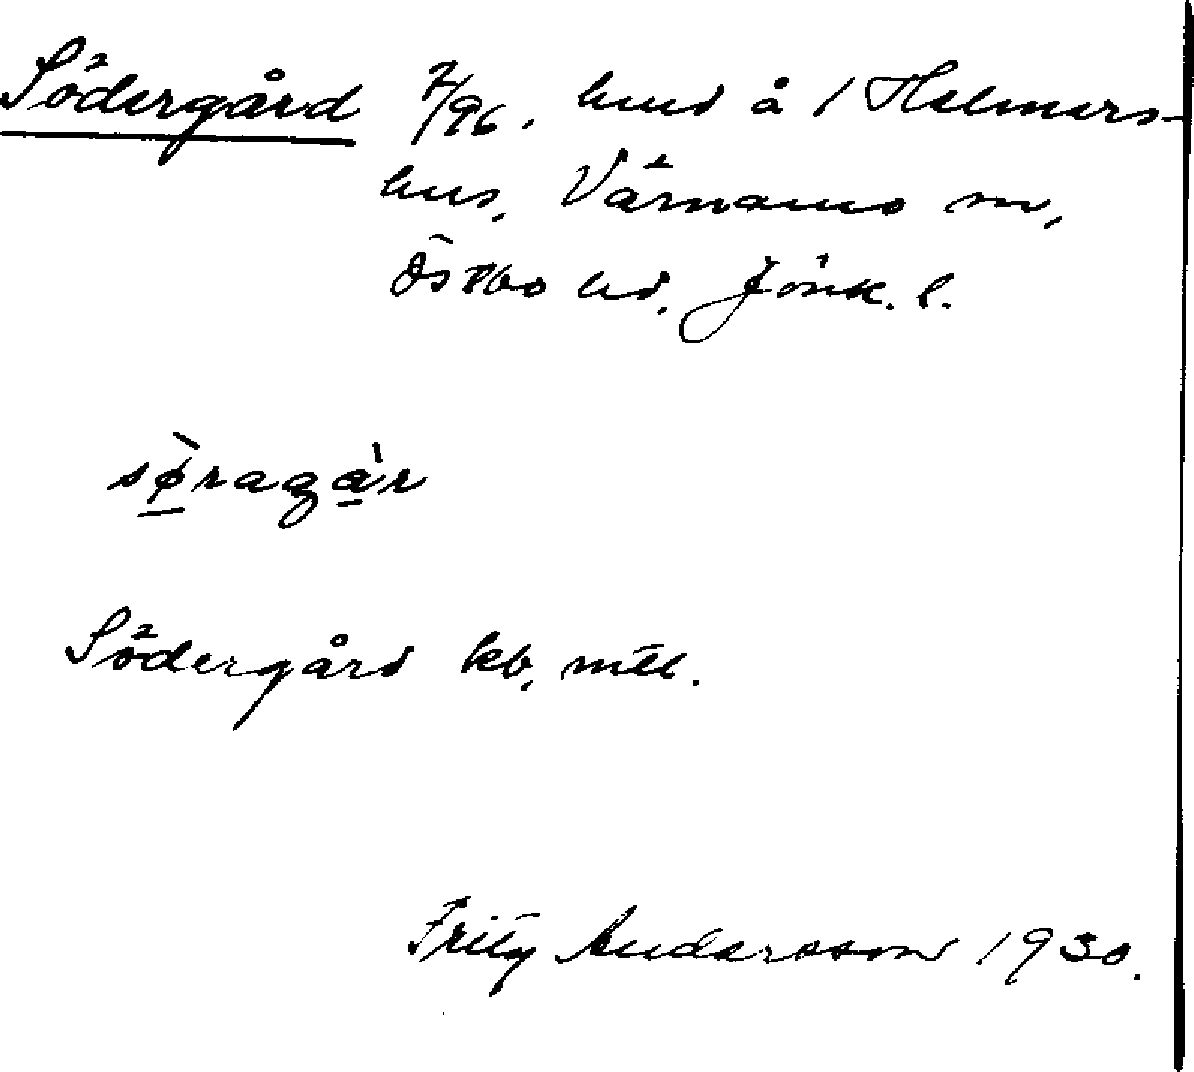 Södergård 7/96. hmd å 1 Helmers-
hus, Värnamo sn,
Östbo hd, Jönk. l.
sø̱̀ragá̱r
Södergård kb, mtl.
Fritz Andersson 1930.